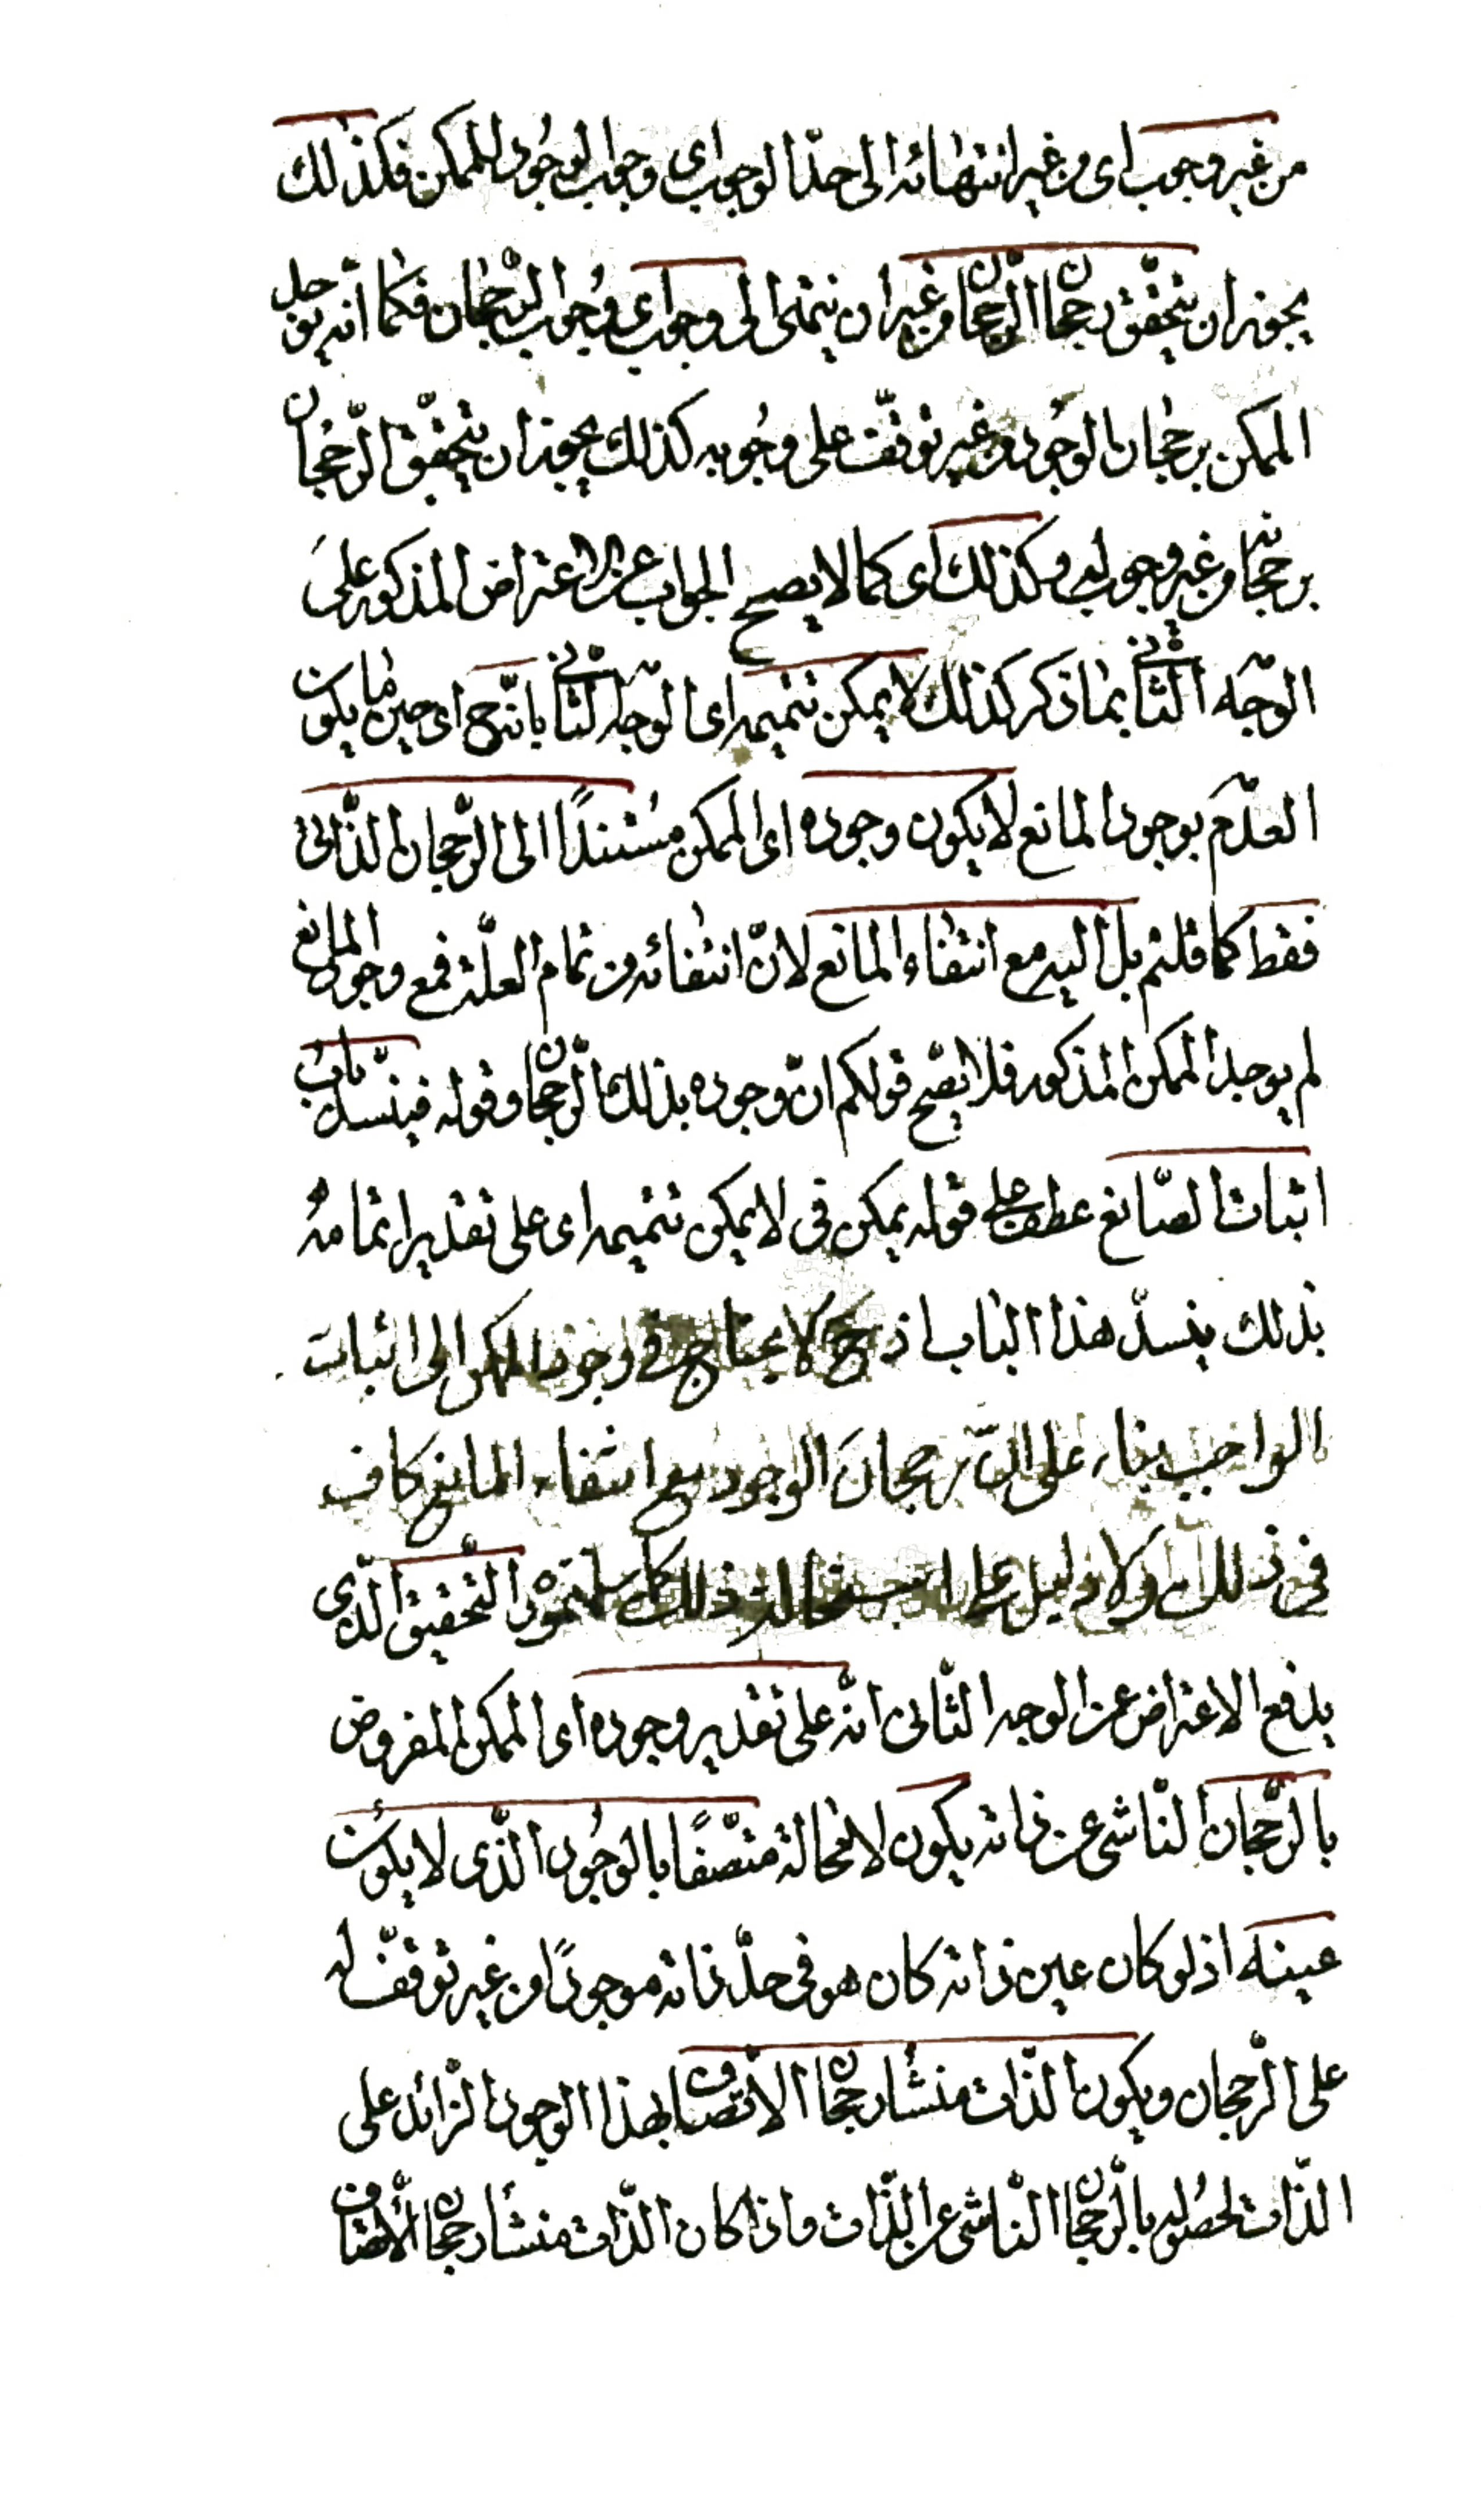 من غير وجوب اى من غير انتهائه الى حدّ الوجوب اى وجوب الوجود للممكن فكذلك
يجوز ان يتحقق رجحان الرّجحان من غير ان ينتهى الى وجوب اى وجوب الرّجحان فكما انّه يوجد
الممكن برجحان الوجود من غير توقّف على وجوبه كذلك يجوز ان يتحقّق الرّجحان
برجحانه من غير وجوبه وكذلك اى كما لا يصح الجواب عن الاعتراض المذكور على
الوجه الثّانى بما ذكر كذلك لا يمكن تتميمه اى الوجه الثّانى بانّه ح اى حين ما يكون
العدم بوجود المانع لا يكون وجوده اى الممكن مستندًا الى الرّجحان الذّاتى
فقط كما قلتم بل اليه مع انتفاء المانع لانّ انتفائه من تمام العلّة فمع وجود المانع
لم يوجد الممكن المذكور فلا يصّح قولكم انّ وجوده بذلك الرّجحان وقوله فينسّد باب
اثبات الصّانع عطف على قوله يمكن فى لا يمكن تتميمه اى على تقدير اتمامه
بذلك ينسدّ هذا الباب اذ ح لا يحتاج فى وجود الممكن الى اثبات
الواجب بناء على انّ رجحان الوجود مع انتفاء المانع كاف
فى ذلك ولا دليل على استحالة ذلك التّحقيق الّذى
يدفع الاعتراض عن الوجه الثّانى انّه على تقدير وجوده اى الممكن المفروض
بالرّجحان النّاشى عن ذاته يكون لا محالة متّصفًا بالوجود الّذى لا يكون
عينه اذ لو كان عين ذاته كان هو فى حدّ ذاته موجودًا من غير توقّف له
على الرّجحان ويكون الذّات منشأ رجحان الاتّصاف بهذا الوجود الزّائد على
الذّات لحصوله بالرّجحان النّاشى عن الذّات واذا كان الذّات منشأ رجحان الاتّصاف